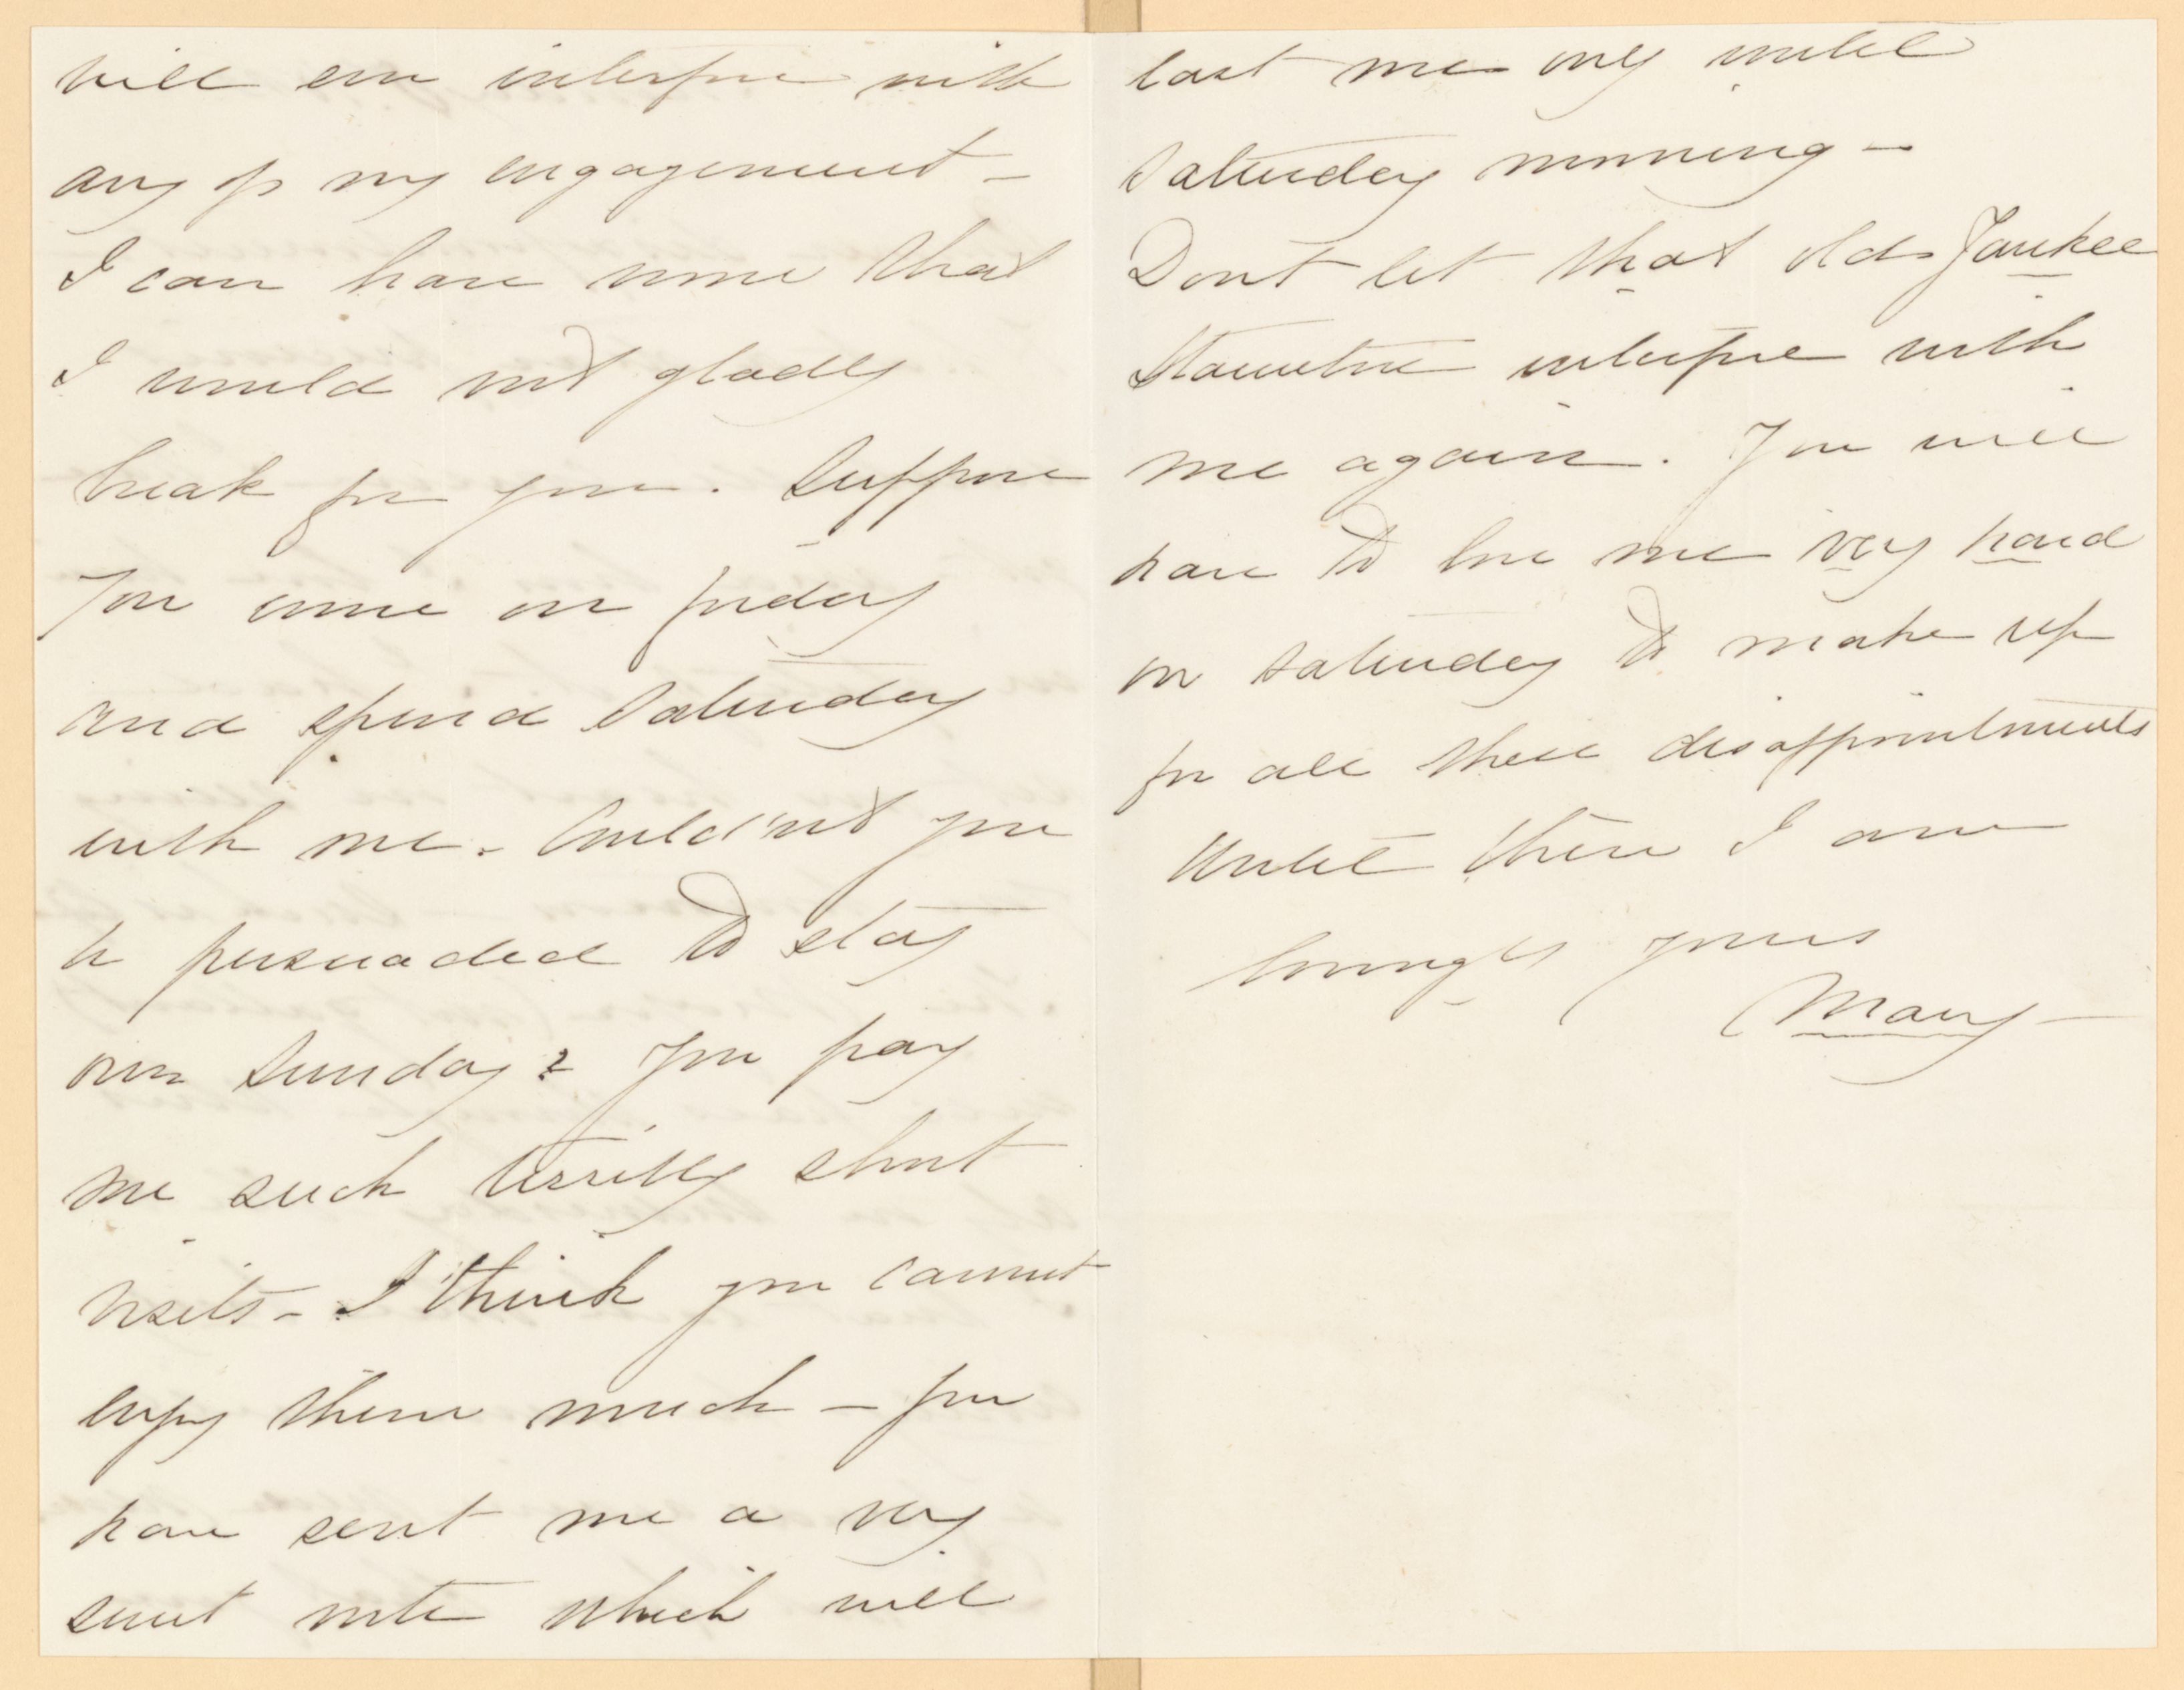 will ever interfere with
any of my engagement -
I can have none that
I would not gladly
break for you. Suppose
You come on friday
and spend Saturday
with me. Could'nt you
be persuaded to stay
over Sunday? You pay
me such terribly short
visits - I think you cannot
enjoy them much - you
have sent me a very
sweet note which will
last me only until
Saturday morning -
Dont let that old Yankee
interfere with
me again. You will
have to love me very hard
on Saturday to make up
for all these disappointments
Until then I am
lovingly yours
Mary -